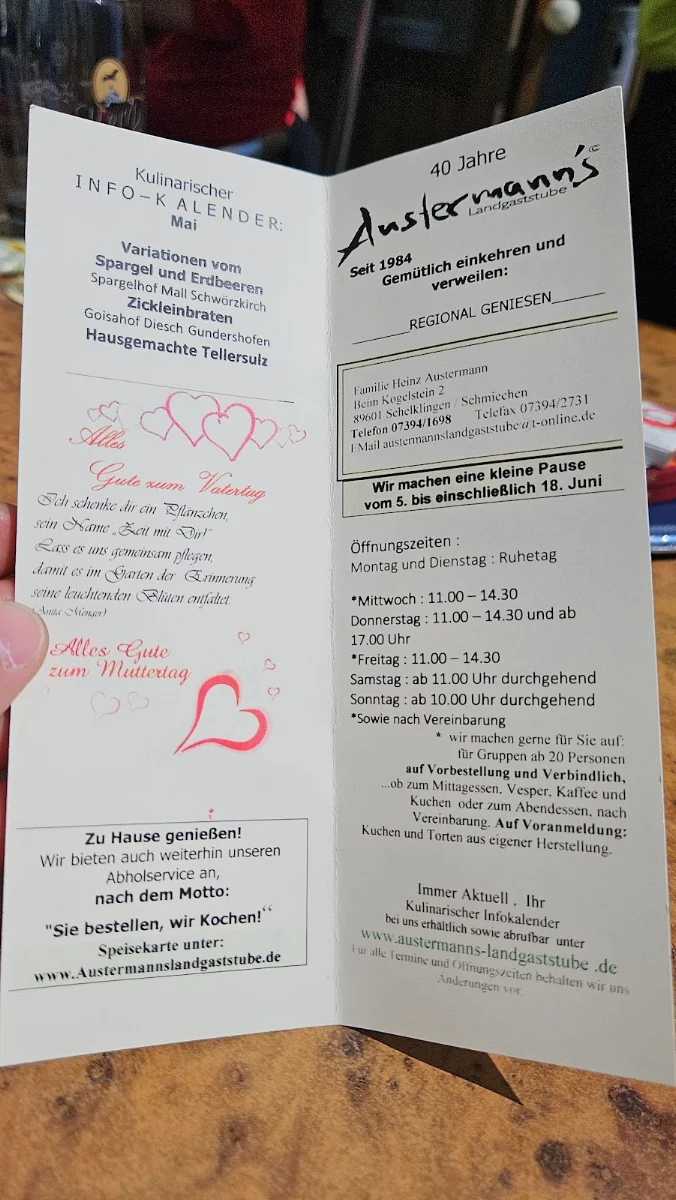 Kulinarischer
INFO-KALENDER:
Mai
Variationen vom
Spargel und Erdbeeren
Spargelhof Mall Schwörzkirch
Zickleinbraten
Goisahof Diesch Gundershofen
Hausgemachte Tellersulz
Alles
Gute zum Vatertag
Ich schenke dir ein Pflänzchen,
sein Name „Zeit mit Dir!"
Lass es uns gemeinsam pflegen,
damit es im Garten der Erinnerung
seine leuchtenden Blüten entfaltet.
(Anita Menger)
Alles Gute
zum Muttertag
Zu Hause genießen!
Wir bieten auch weiterhin unseren
Abholservice an,
nach dem Motto:
"Sie bestellen, wir Kochen!“
Speisekarte unter:
www.Austermannslandgaststube.de
40 Jahre
Austermann's©
Landgaststube
Seit 1984
Gemütlich einkehren und
verweilen:
______REGIONAL GENIESEN______
Familie Heinz Austermann
Beim Kogelstein 2
89601 Schelklingen / Schmiechen
Telefon 07394/1698 Telefax 07394/2731
EMail austermannslandgaststube@t-online.de
Wir machen eine kleine Pause
vom 5. bis einschließlich 18. Juni
Öffnungszeiten :
Montag und Dienstag : Ruhetag
*Mittwoch : 11.00 – 14.30
Donnerstag : 11.00 – 14.30 und ab
17.00 Uhr
*Freitag : 11.00 – 14.30
Samstag : ab 11.00 Uhr durchgehend
Sonntag : ab 10.00 Uhr durchgehend
*Sowie nach Vereinbarung
* wir machen gerne für Sie auf:
für Gruppen ab 20 Personen
auf Vorbestellung und Verbindlich,
...ob zum Mittagessen, Vesper, Kaffee und
Kuchen oder zum Abendessen, nach
Vereinbarung. Auf Voranmeldung:
Kuchen und Torten aus eigener Herstellung.
Immer Aktuell , Ihr
Kulinarischer Infokalender
bei uns erhältlich sowie abrufbar unter
www.austermanns-landgaststube .de
Für alle Termine und Öffnungszeiten behalten wir uns
Änderungen vor.